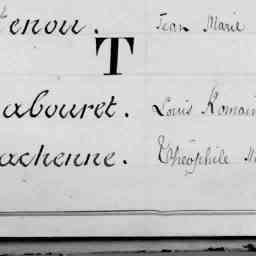 enou. Jean Marie
T
abouret. Louis Romain
achenne. Théophile